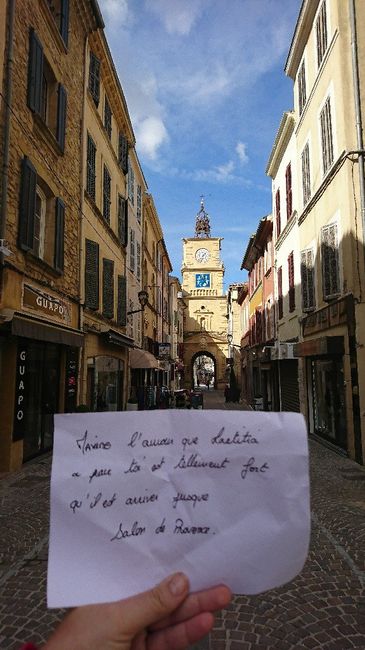 GUAPO
GUAPO
l'amour que Laetitia
a pour toi est tellement fort
qu'il est arriver jusque
Salon de Provence.